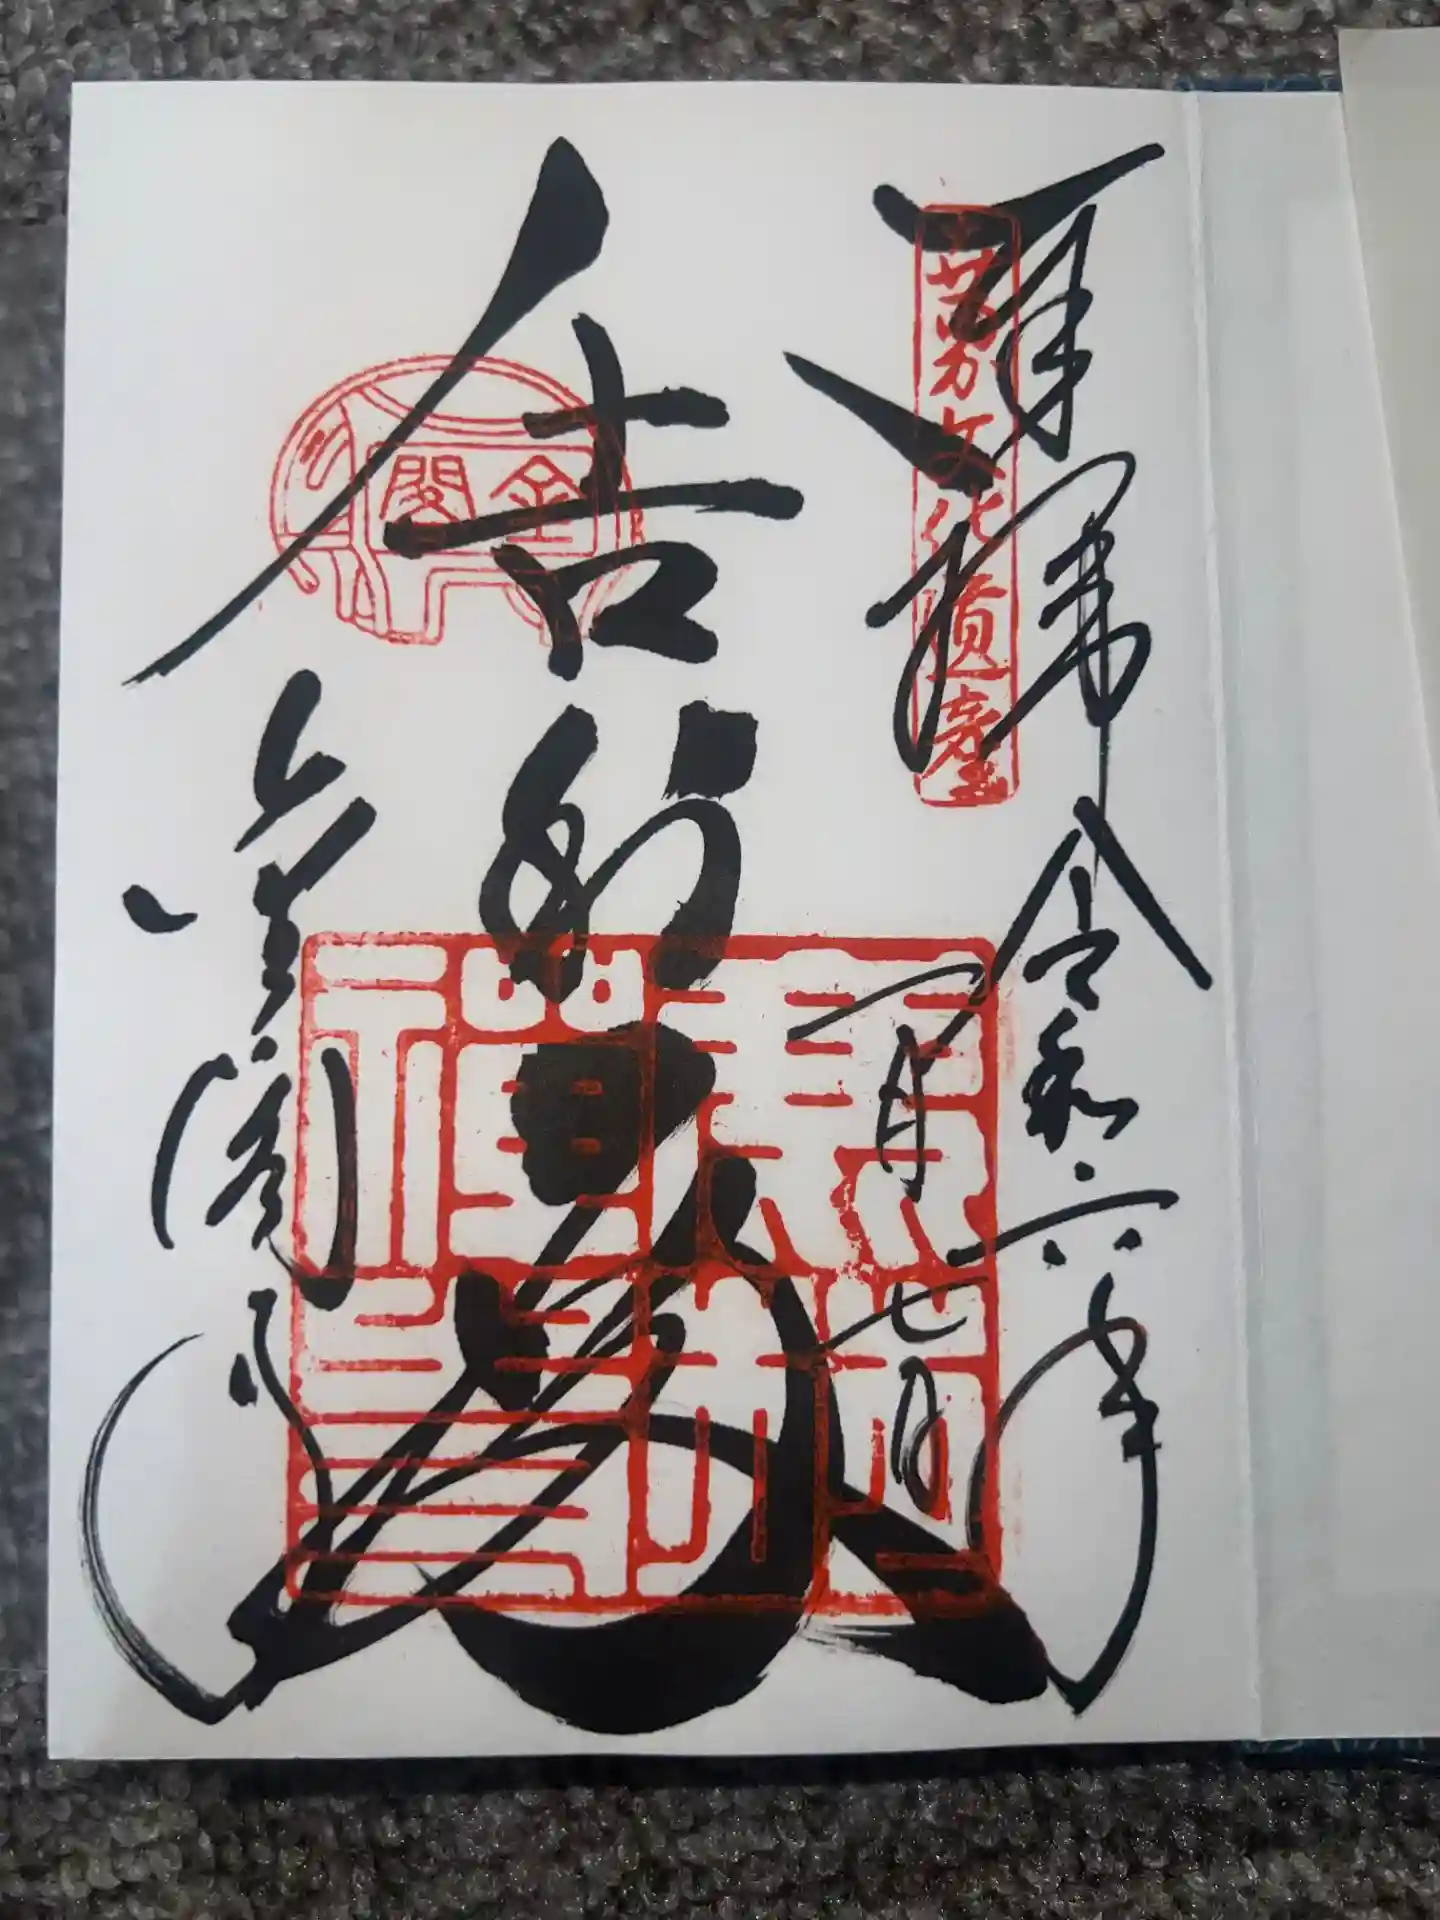 奉拝
世界文化遺産
令和六年
一月七日
舎利殿
金閣
金閣寺